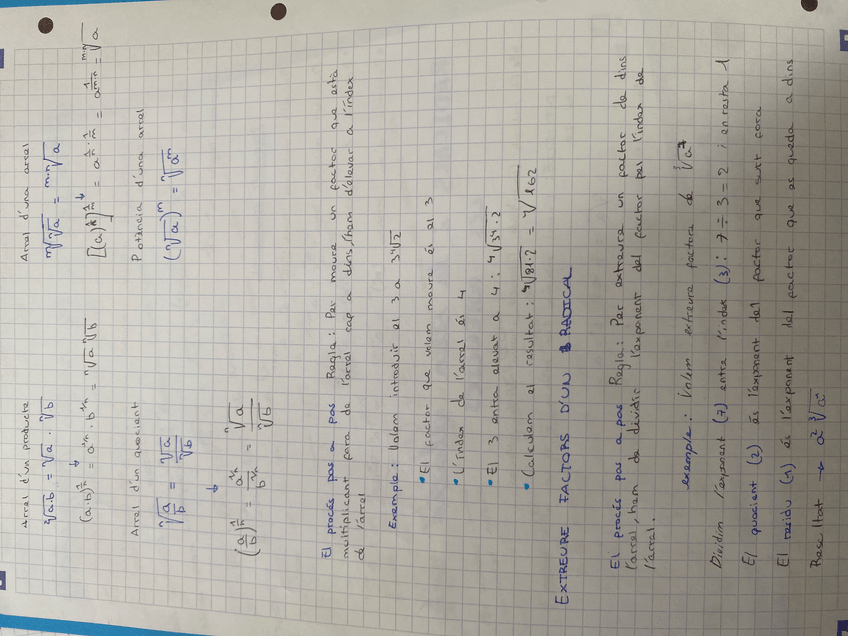 Arrel d'un producte
ⁿ√a·b = ⁿ√a · ⁿ√b
↓
(a·b)^1/n = a^1/n · b^1/n = ⁿ√a ⁿ√b
Arrel d'un quocient
ⁿ√(a/b) = ⁿ√a / ⁿ√b
↓
(a/b)^1/n = a^1/n / b^1/n = ⁿ√a / ⁿ√b
Arrel d'una arrel
ᵐ√ⁿ√a = ᵐ·ⁿ√a
↓
[(a)^1/n]^1/m = a^(1/n · 1/m) = a^(1/m·n) = ᵐ·ⁿ√a
Potència d'una arrel
(ⁿ√a)^m = ⁿ√a^m
El procés pas a pas Regla: Per moure un factor que està
multiplicant fora de l'arrel cap a dins, ham d'elevar a l'índex
de l'arrel
Exemple: Volem introduir el 3 a 3⁴√2
• El factor que volem moure és el 3
• L'índex de l'arrel és 4
• El 3 entra elevat a 4: ⁴√3⁴·2
• Calculem el resultat: ⁴√81·2 = ⁴√162
EXTREURE FACTORS D'UN RADICAL
El procés pas a pas Regla: Per extreure un factor de dins
l'arrel, ham de dividir l'exponent del factor per l'índex de
l'arrel.
exemple: Volem extreure factors de ³√a⁷
Dividim l'exponent (7) entre l'índex (3): 7 ÷ 3 = 2 i en resta 1
El quocient (2) és l'exponent del factor que surt fora
El residu (1) és l'exponent del factor que es queda a dins
Resultat → a² ³√a¹